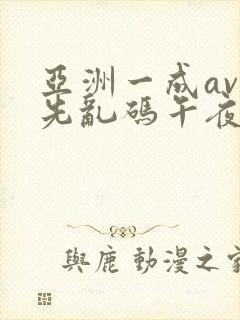 亞洲一成av
先亂碼午夜
與鹿 動漫之家